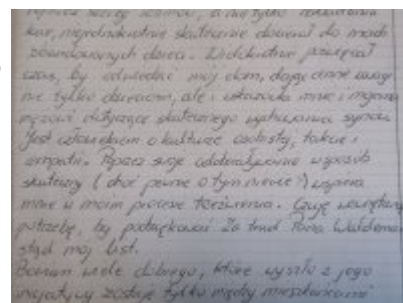 kar, niejednokrotnie skutecznie docierał do moich
Wielokrotnie poświęcał
czas, by odwiedzić mój dom, dając cenne uwagi
nie tylko dzieciom, ale i wskazówki mnie i mojemu
mężowi dotyczące skutecznego wychowania synów.
Jest człowiekiem o kulturze osobistej, takcie i
empatii. Poprzez swoje oddziaływanie w sposób
skuteczny (choć pewnie o tym nie wie ) wspiera
mnie w moim procesie trzeźwienia. Czuję wewnętrzną
potrzebę, by podziękować za trud Pana Waldemara
stąd mój list.
wiele dobrego, które wyszło z jego
inicjatywy zostaje tylko między mieszkańcami